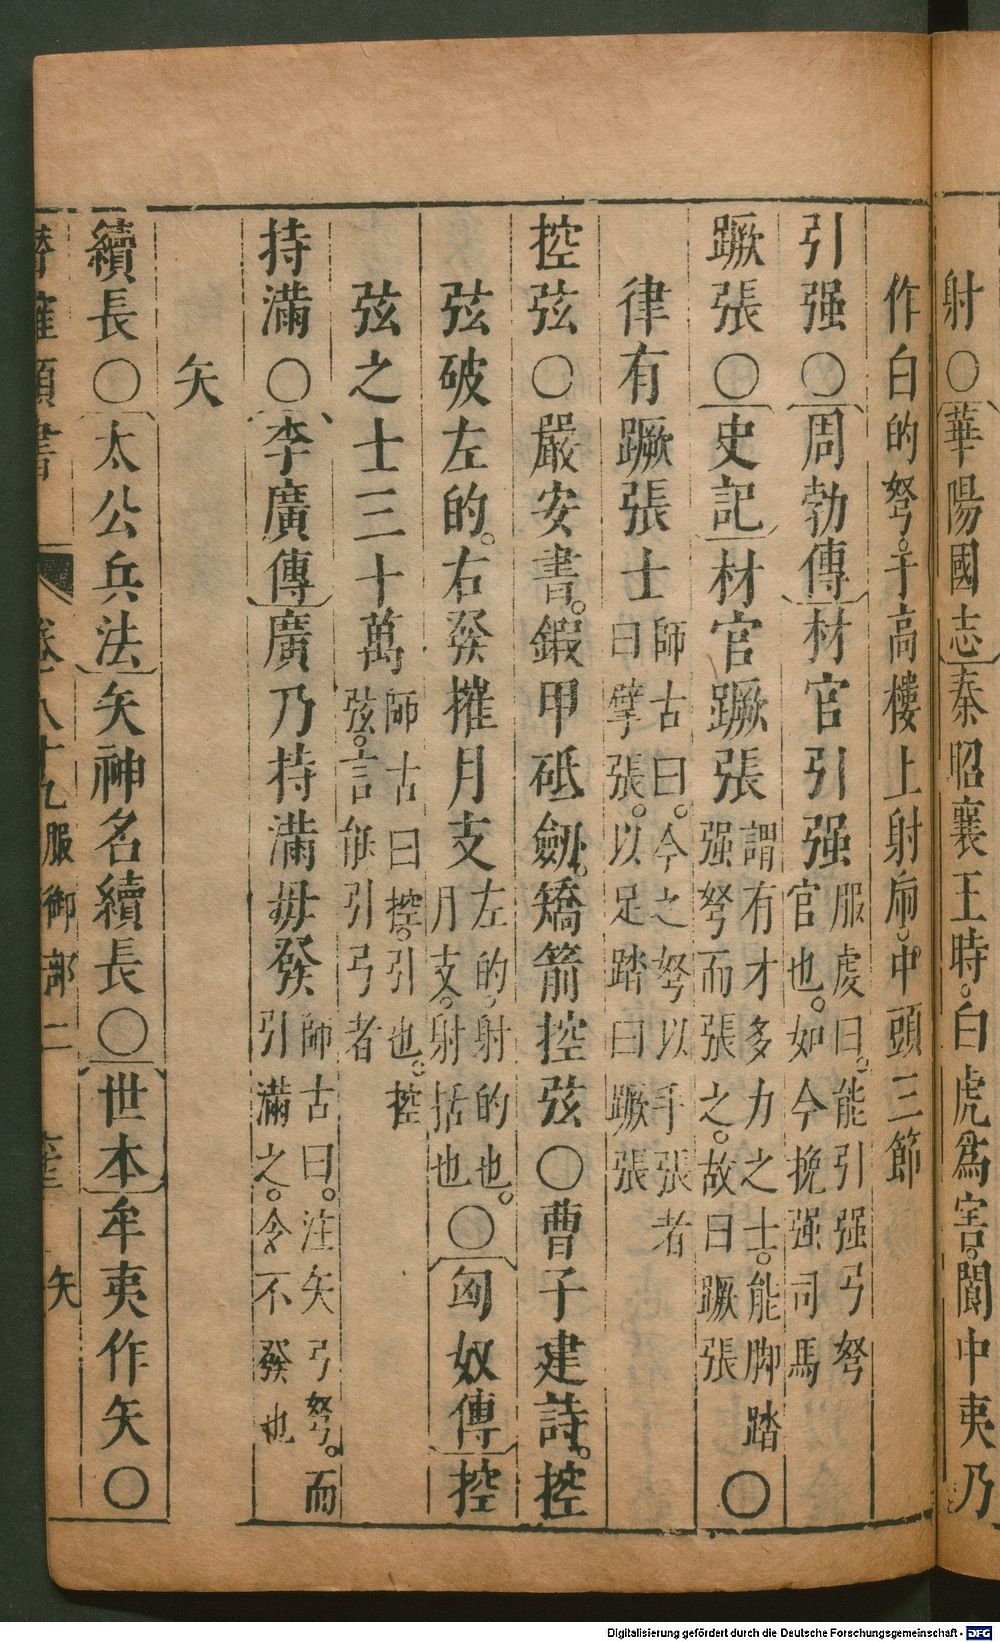 射○華陽國志秦昭襄王時。白虎爲害。閬中夷乃
作白的弩。于高樓上射虎。中頭三節
引强○周勃傳材官引强服虔曰。能引强弓弩
官也。如今挽强司馬
蹶張○史記材官蹶張謂有才多力之士。能脚踏
强弩而張之。故曰蹶張○
律有蹶張士師古曰。今之弩以手張者
曰擘張。以足踏曰蹶張
控弦○嚴安書。鍜甲砥劔。矯箭控弦○曹子建詩。控
弦破左的。右發摧月支左的。射的也。
月支。射括也○匈奴傳控
弦之士三十萬師古曰控。引也。控
弦。言能引弓者
持滿○李廣傳廣乃持滿毋發師古曰。注矢弓弩。而
引滿之。令不發也
矢
續長○太公兵法矢神名續長○世本牟夷作矢○
潛確類書 卷八十九服御部二 矢
Digitalisierung gefördert durch die Deutsche Forschungsgemeinschaft - DFG